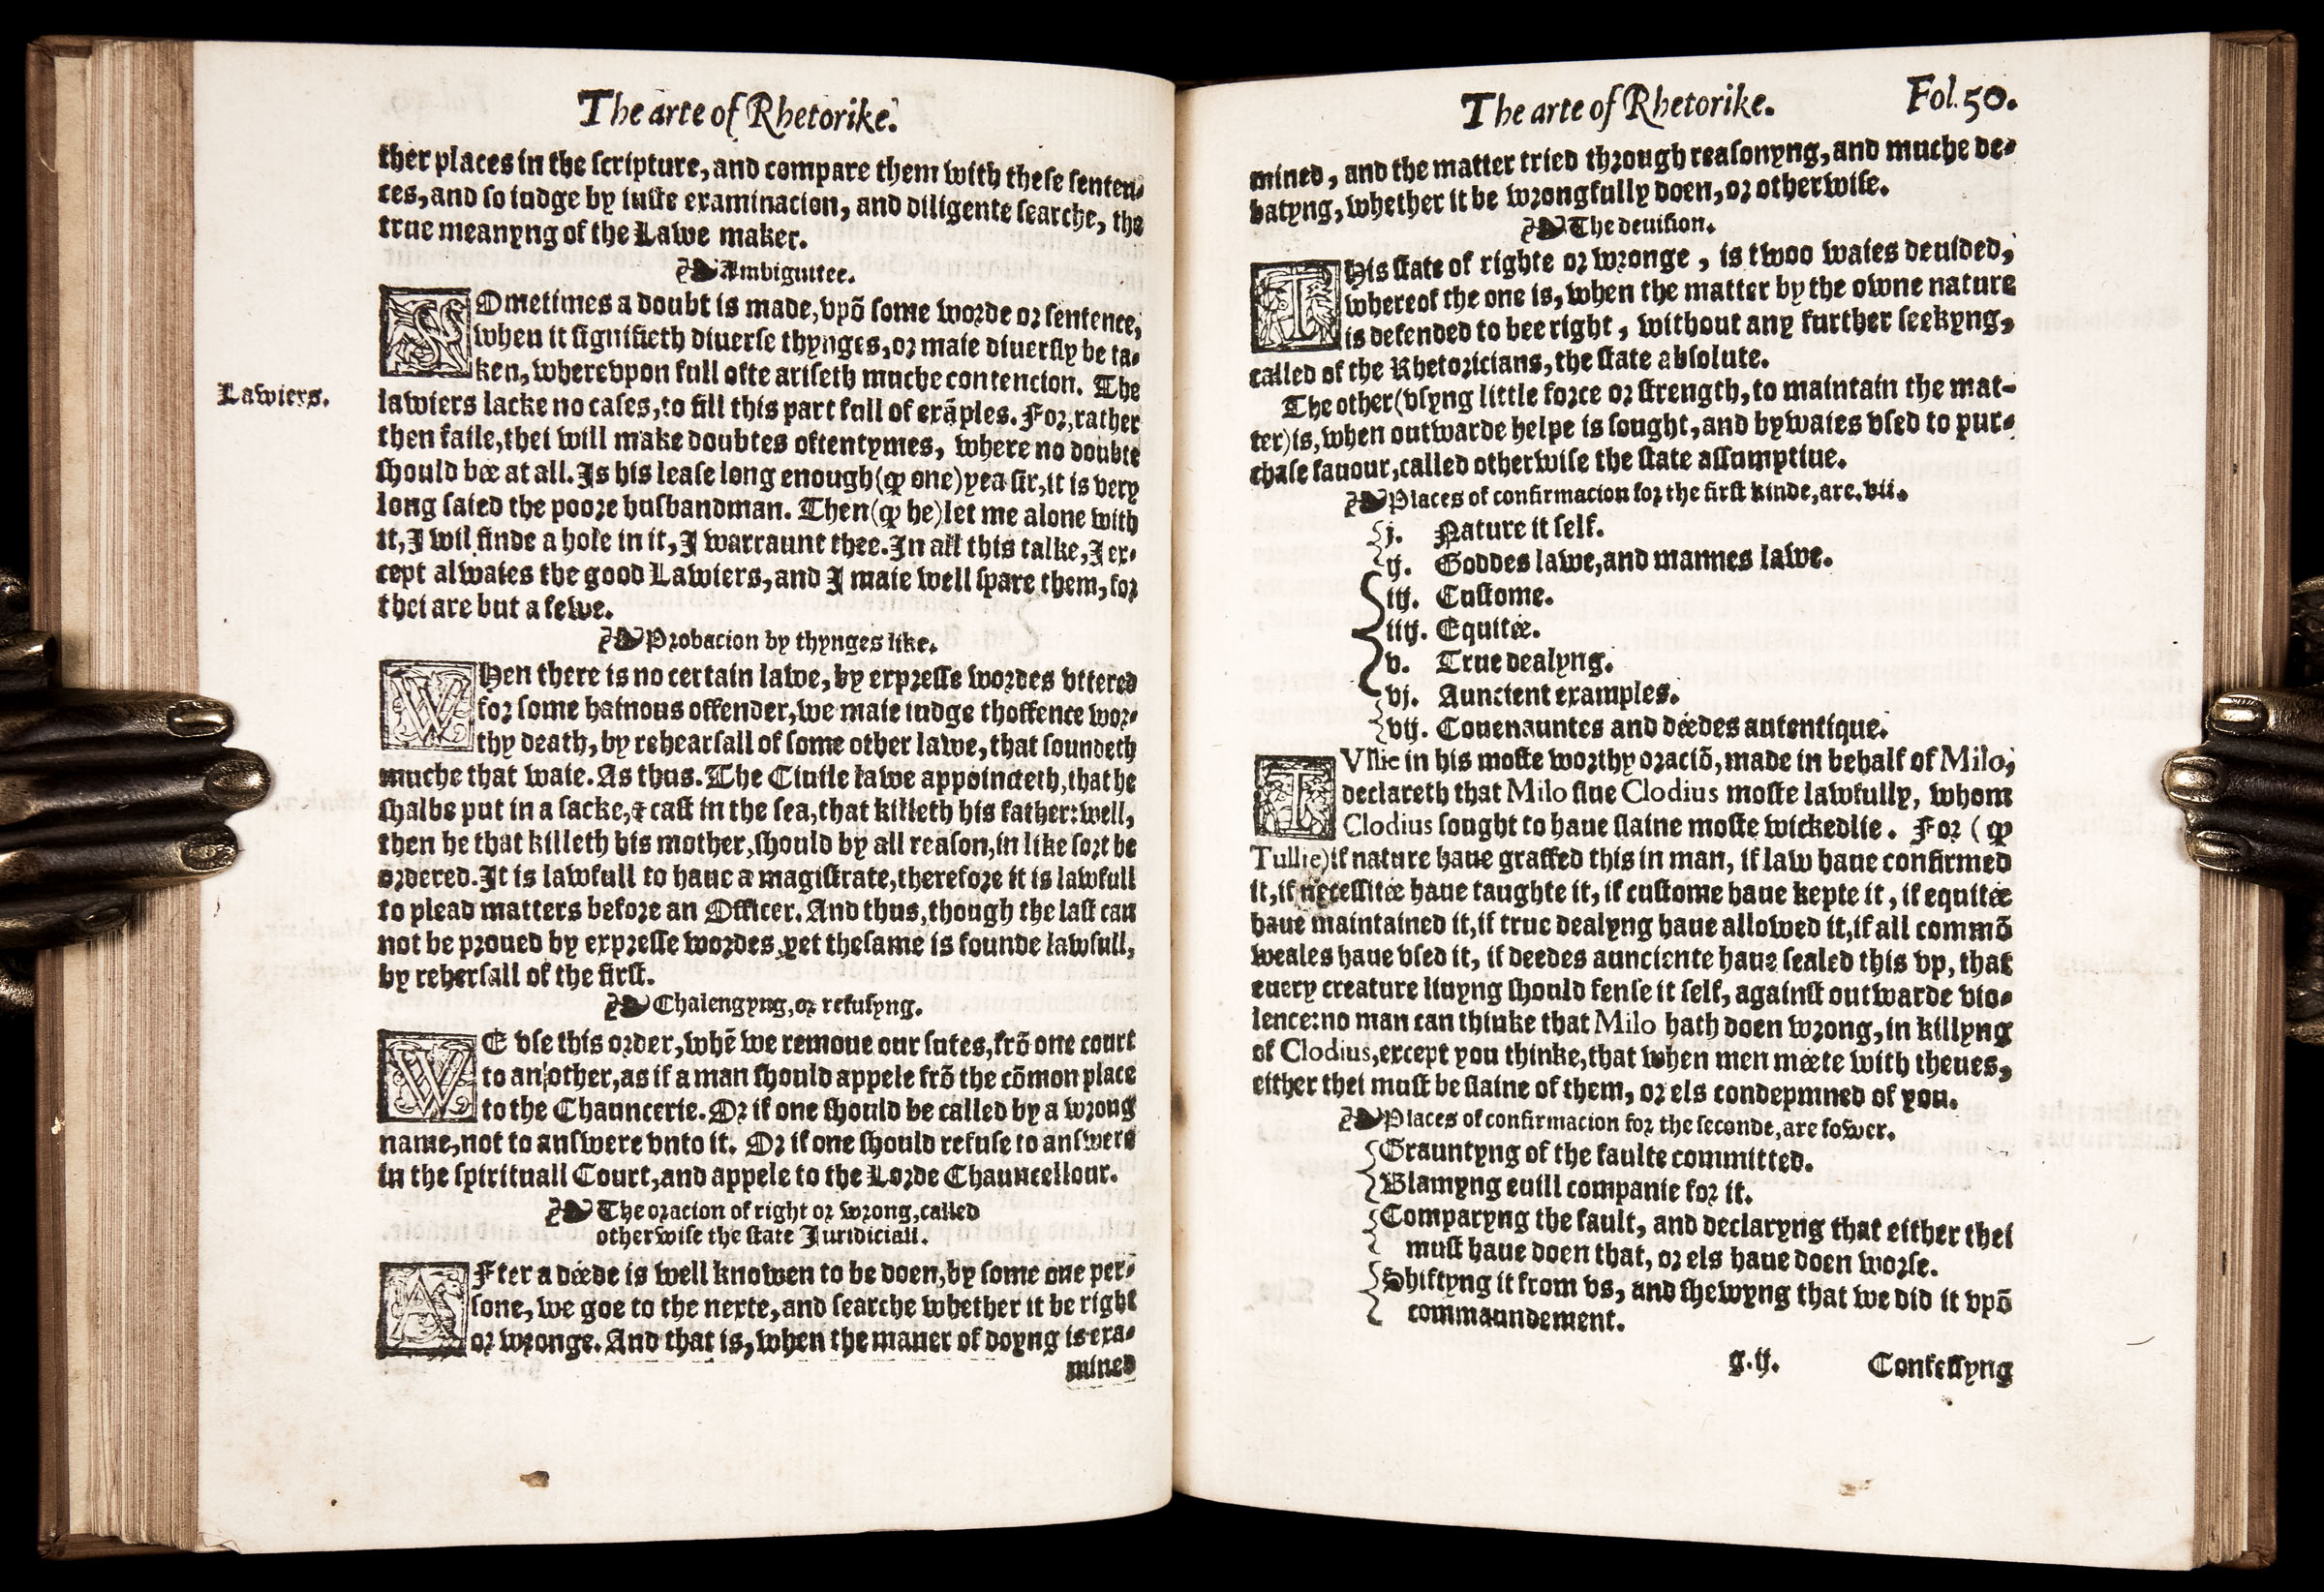 The arte of Rhetorike.
ther places in the scripture, and compare them with these senten-
ces, and so iudge by iuste examinacion, and diligente searche, the
true meanyng of the Lawe maker.
Ambiguitee.
SOmetimes a doubt is made, vpõ some worde or sentence,
when it signifieth diuerse thynges, or maie diuersly be ta-
ken, wherevpon full ofte ariseth muche contencion. The
Lawiers.
lawiers lacke no cases, to fill this part full of exãples. For, rather
then faile, thei will make doubtes oftentymes, where no doubte
should bee at all. Is his lease long enough (ꝙ one) yea sir, it is very
long saied the poore husbandman. Then (ꝙ he) let me alone with
it, I wil finde a hole in it, I warraunt thee. In all this talke, I ex-
cept alwaies the good Lawiers, and I maie well spare them, for
thei are but a fewe.
Probacion by thynges like.
WHen there is no certain lawe, by expresse wordes vttered
for some hainous offender, we maie iudge thoffence wor-
thy death, by rehearsall of some other lawe, that soundeth
muche that waie. As thus. The Ciuile lawe appoincteth, that he
shalbe put in a sacke, & cast in the sea, that killeth his father: well,
then he that killeth his mother, should by all reason, in like sort be
ordered. It is lawfull to haue a magistrate, therefore it is lawfull
to plead matters before an Officer. And thus, though the last can
not be proued by expresse wordes, yet thesame is founde lawfull,
by rehersall of the first.
Chalengyng, or refusyng.
WE vse this order, whẽ we remoue our sutes, frõ one court
to another, as if a man should appele frõ the cõmon place
to the Chauncerie. Or if one should be called by a wrong
name, not to answere vnto it. Or if one should refuse to answere
in the spirituall Court, and appele to the Lorde Chauncellour.
The oracion of right or wrong, called
otherwise the state Iuridiciall.
AFter a deede is well knowen to be doen, by some one per-
sone, we goe to the nexte, and searche whether it be right
or wronge. And that is, when the maner of doyng is exa-
mined
The arte of Rhetorike. Fol. 50.
mined, and the matter tried through reasonyng, and muche de-
batyng, whether it be wrongfully doen, or otherwise.
The deuision.
THis state of righte or wronge, is twoo waies deuided,
whereof the one is, when the matter by the owne nature
is defended to bee right, without any further seekyng,
called of the Rhetoricians, the state absolute.
The other (vsyng little force or strength, to maintain the mat-
ter) is, when outwarde helpe is sought, and bywaies vsed to pur-
chase fauour, called otherwise the state assumptiue.
Places of confirmacion for the first kinde, are. vii.
j. Nature it self.
ij. Goddes lawe, and mannes lawe.
iij. Custome.
iiij. Equitee.
v. True dealyng.
vj. Auncient examples.
vij. Couenauntes and deedes autentique.
TVllie in his moste worthy oraciõ, made in behalf of Milo,
declareth that Milo slue Clodius moste lawfully, whom
Clodius sought to haue slaine moste wickedlie. For (ꝙ
Tullie) if nature haue graffed this in man, if law haue confirmed
it, if necessitee haue taughte it, if custome haue kepte it, if equitee
haue maintained it, if true dealyng haue allowed it, if all commõ
weales haue vsed it, if deedes aunciente haue sealed this vp, that
euery creature liuyng should fense it self, against outwarde vio-
lence: no man can thinke that Milo hath doen wrong, in killyng
of Clodius, except you thinke, that when men meete with theues,
either thei must be slaine of them, or els condepmned of you.
Places of confirmacion for the seconde, are fower.
Grauntyng of the faulte committed.
Blamyng euill companie for it.
Comparyng the fault, and declaryng that either thei
must haue doen that, or els haue doen worse.
Shiftyng it from vs, and shewyng that we did it vpõ
commaundement.
g.ij. Confessyng